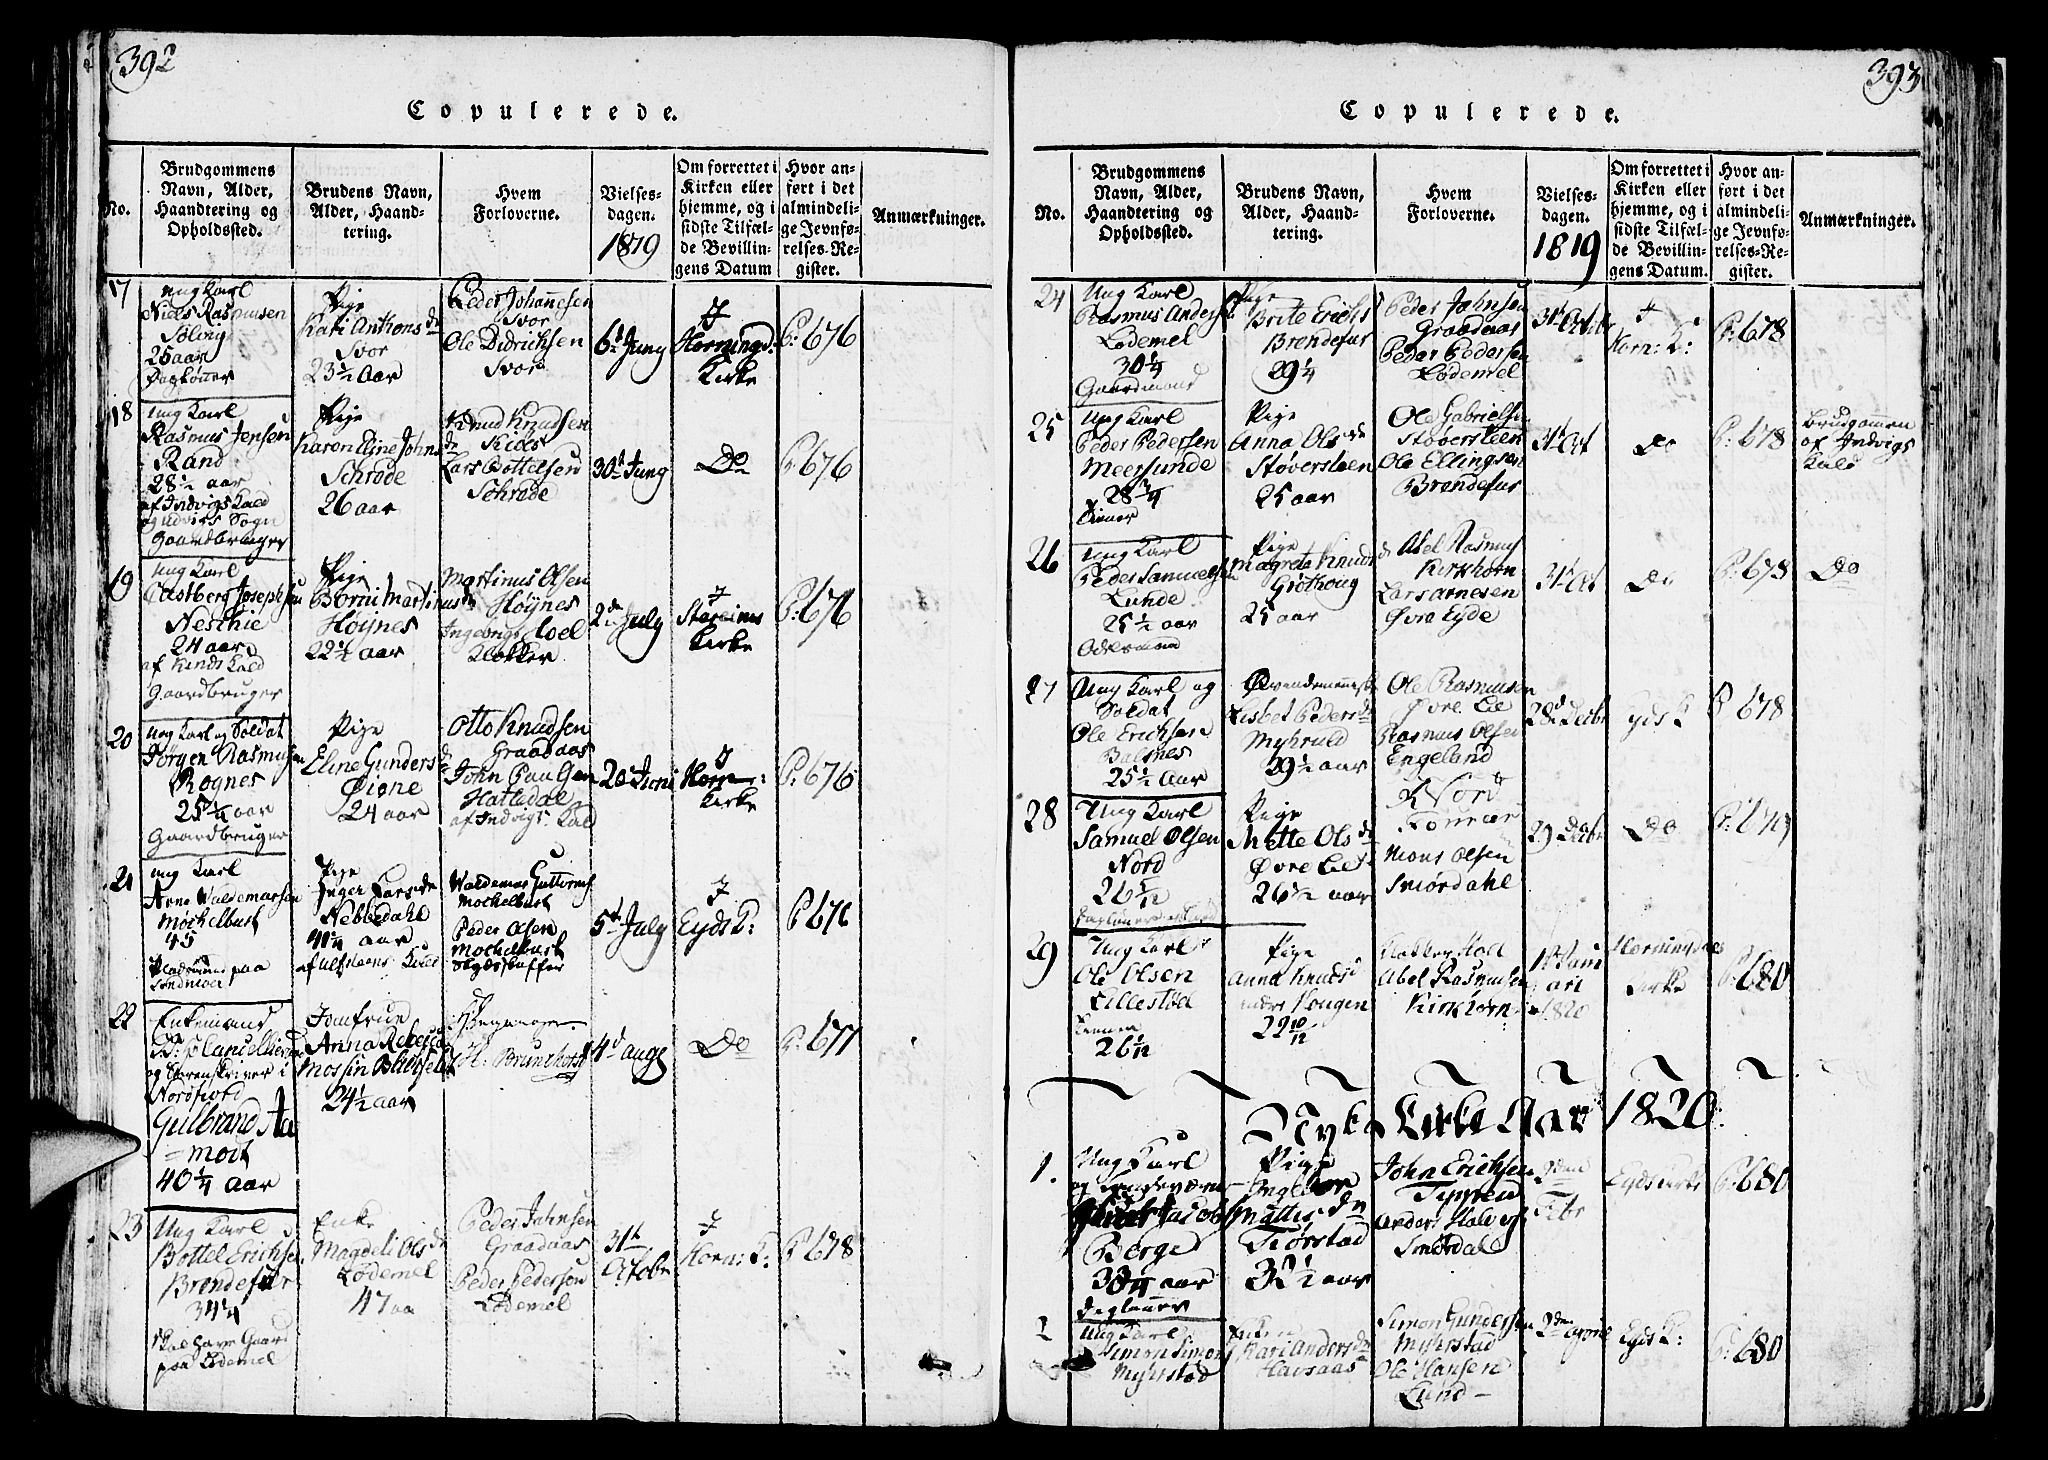 392
Copulerede.
No.
Brudgommens
Navn, Alder,
Haandtering og
Opholdssted.
Brudens Navn,
Alder, Haand-
tering.
Hvem
Forloverne.
Vielses-
dagen.
1819
Om forrettet i
Kirken eller
hjemme, og i
sidste Tilfæl-
de Bevillin-
gens Datum
Hvor an-
ført i det
almindeli-
ge Jevnfø-
relses-Re-
gister.
Anmærkninger.
17
ung Karl
Niels Rasmusen
Søling
26 aar
Pige
Kari Anthons dr
Svor
23 1/2 Aar
Peder Johannesen
Svor
Ole Didrichsen
Svor
6d Juny
Horningd.
Kirke
P: 676
18
ung Karl
Rasmus Jensen
Rand
28 1/2 aar
af Indvigs Kald
og Indvigs Sogn
Gaardbruger
Pige
Karen Eline Johns dr
Schrøde
26 aar
Knud Knudsen
Lars Bottelsen
Schrøde
30d Juny
Do
P 676
19
ung Karl
Josephsen
Neschie
24 aar
af Kinds Kald
Gaardbruger
Pige
Borni Martinus dr
Høÿnes
22 1/2 aar
Martinus Olsen
Høÿnes
Moel
Klokker
2de July
Kirke
P: 676
20
ung Karl og Soldat
Jørgen Rasmusen
Rognes
25 1/4 aar
Gaardbruger
Pige
Eline Gunders dr
Øigne
24 aar
Otto Knudsen
Graadaas
John Paulsen
Hatledal
af Indvigs Kald
20 Juni
Horn:
Kirke
P: 676
21
ung Karl
Arne Waldemarsen
Mochelbust
45
Pige
Inger Larsdr
Nebbedahl
41 1/4 aar
Waldemar Gutterms
Mochelbust
Peder Olsen
Mochelbust
Skydsskaffer
5d July
Eyds K:
P 676
22
Enkemand
og Sorenskriver i
Nordfiord
Gulbrand Aa
=modt
40 1/4 aar
Jomfrue
Anna Rebecca
24 1/2 aar
H: Brunchorst
4d Aug
Do
P. 677
23
Ung Karl
Bottel Erichsen
Brendefur
34 1/4
skal have Gaard
paa Lødemel
Enke
Magdeli Ols dr
Lødemel
47 aa
Peder Johnsen
Graadaas
Peder Pedersen
Lødemel
31te
Octobr
Horn: K:
P 678
393
Copulerede.
No.
Brudgommens
Navn, Alder,
Haandtering og
Opholdssted.
Brudens Navn,
Alder, Haand-
tering.
Hvem
Forloverne.
Vielses-
dagen.
1819
Om forrettet i
Kirken eller
hjemme, og i
sidste Tilfæl-
de Bevillin-
gens Datum.
Hvor an-
ført i det
almindeli-
ge Jevnfø-
relses-Re-
gister.
Anmærkninger.
24
Ung Karl
Rasmus Anders
Lødemel
30 1/4
Gaardmand
Pige
Brite Erichs
Brendefur
29 1/4
Peder Johnsen
Graadaas
Peder Pedersen
Lødemel
31te Octbr
Horn: K:
P: 678
25
Ung Karl
Peder Pedersen
Meerlunde
28 3/4
Pige
Anna Ols dr
Støversteen
25 aar
Ole Gabrielsen
Støversteen
Ole Ellingsen
Brendefur
31te Oct
Do
P: 678
Brudgommen
af Indvigs
Kald
26
ung Karl
Peder Samuelsen
Lunde
25 1/2 aar
Pige
Magrete Knuds dr
Grothoug
25 aar
Abel Rasmus
Kirkhorn
Lars Arnesen
Øvre Eyde
31te Oct
Do
P: 678
Do
27
Ung Karl og
Soldat
Ole Erichsen
Balsnes
25 1/2 Aar
Lisbet Peders dr
Myhrvold
39 1/2 aar
Ole Rasmusen
Øvre Lee
Rasmus Olsen
Engeland
28d Decbr
Eyds K
P 678
28
Ung Karl
Samuel Olsen
Nord
26 5/12
Pige
Mette Ols dr
Øvre Lee
26 1/2 aar
Nord
Mons Olsen
Smørdahl
29 Decbr
Do
29
Ung Karl
Ole Olsen
Lillestøl
26 1/12
Pige
Anna Knuds
Hougen
22 10/12
Klokker Moel
Abel Rasmusen
Kirkhorn
1te Janu
ari
1820
Horningdals
Kirke
P. 680
Nyt Kirke Aar 1820.
1.
Ung Karl
Jacob
Berge
33 1/4 aar
Dagleiner
Pige
Mattis dr
Tiørstad
32 1/2 aar
John Erichsen
Anders Halvors
Smørdal
2den
Febr
Eyds Kirke
P. 680
2
Ung Karl
Simon Simons
Myhrstad
Enke
Kari Anders dr
Havsaas
Simon Gundersen
Myhrstad
Ole Hansen
Lund
2den April
Eyds K:
P: 680